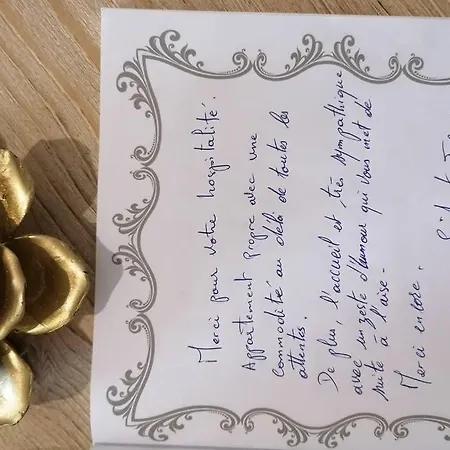 Merci pour votre hospitalité.
Appartement propre avec une
commodité au delà de toutes les
attentes.
De plus, l'accueil est très sympathique
avec un zeste d'humour qui vous met de
suite à l'aise -
Merci encore.